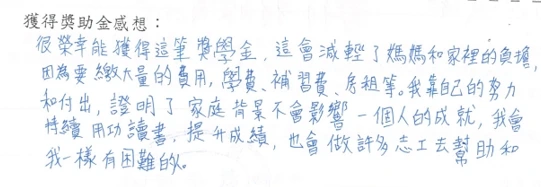 獲得獎助金感想：
很榮幸能獲得這筆獎學金，這會減輕了媽媽和家裡的負擔，
因為要繳大量的費用，學費、補習費、房租等。我靠自己的努力
和付出，證明了家庭背景不會影響一個人的成就，我會
持續用功讀書，提升成績，也會做許多志工去幫助和
我一樣有困難的人。